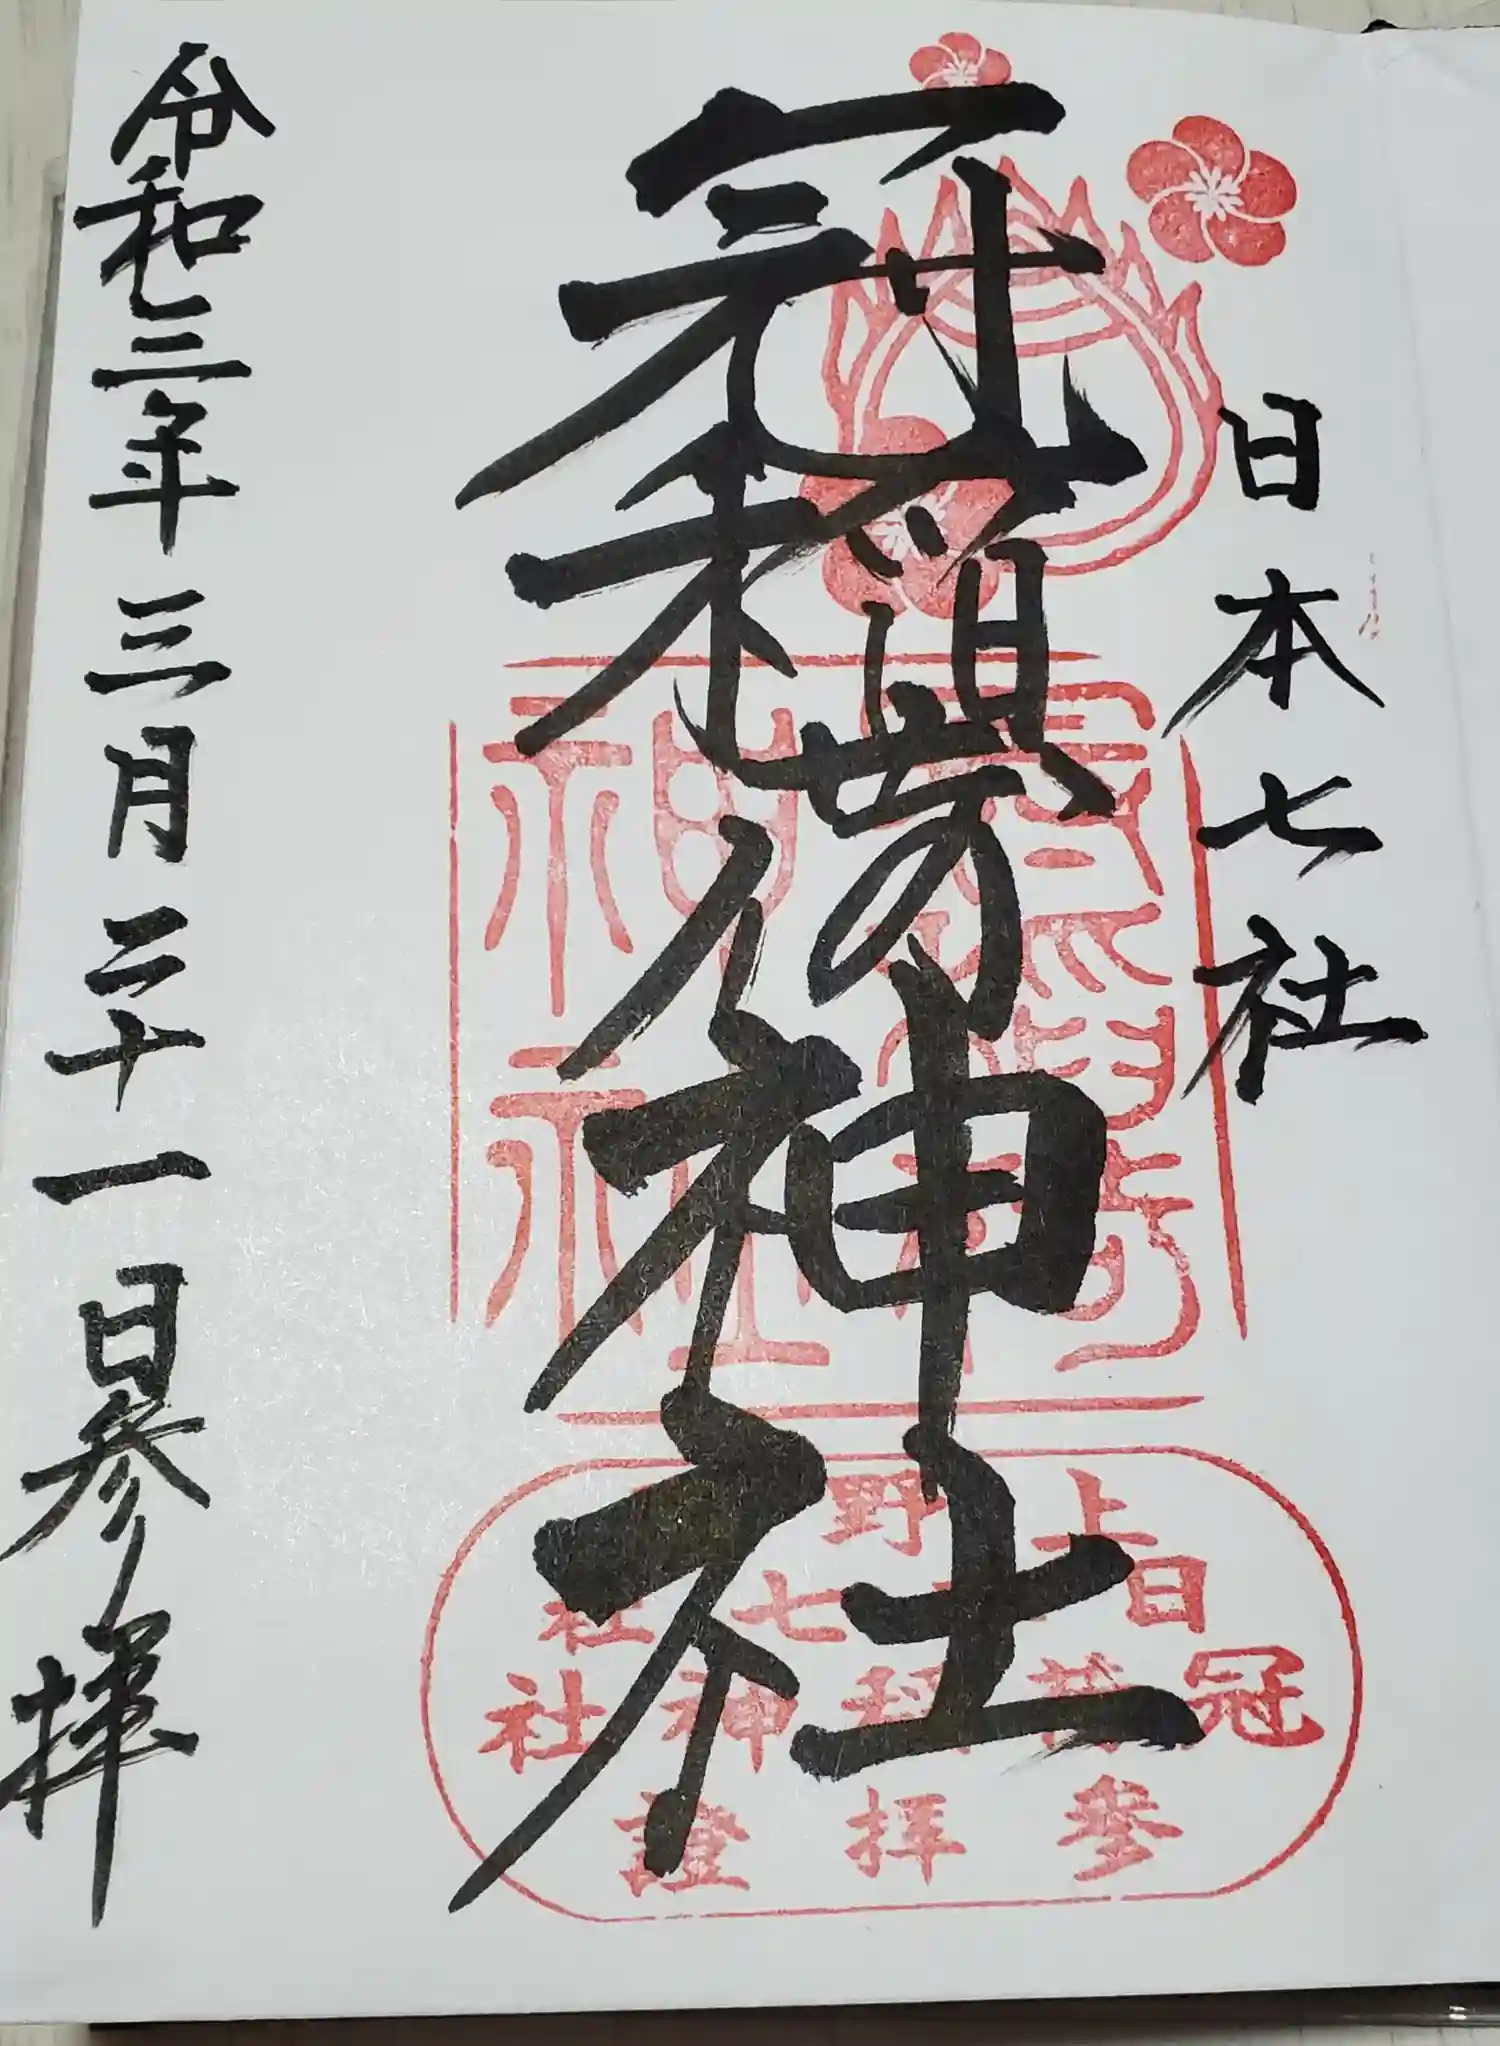 日本七社
冠稲荷神社
令和三年三月二十一日参拝
神社
上野
日本七社
冠稲荷神社
參拝證